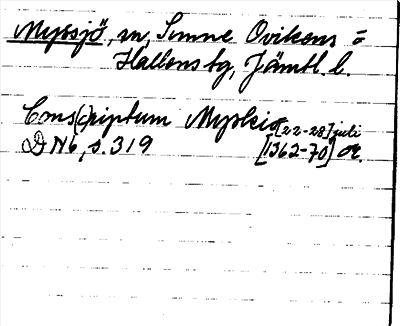 Myssjö, sn, Sunne Ovikens o
Hallens tg, Jämtl l.
Cons(c)riptum Myskio [22-28] juli
DN6, s. 319 [1362-70] or.